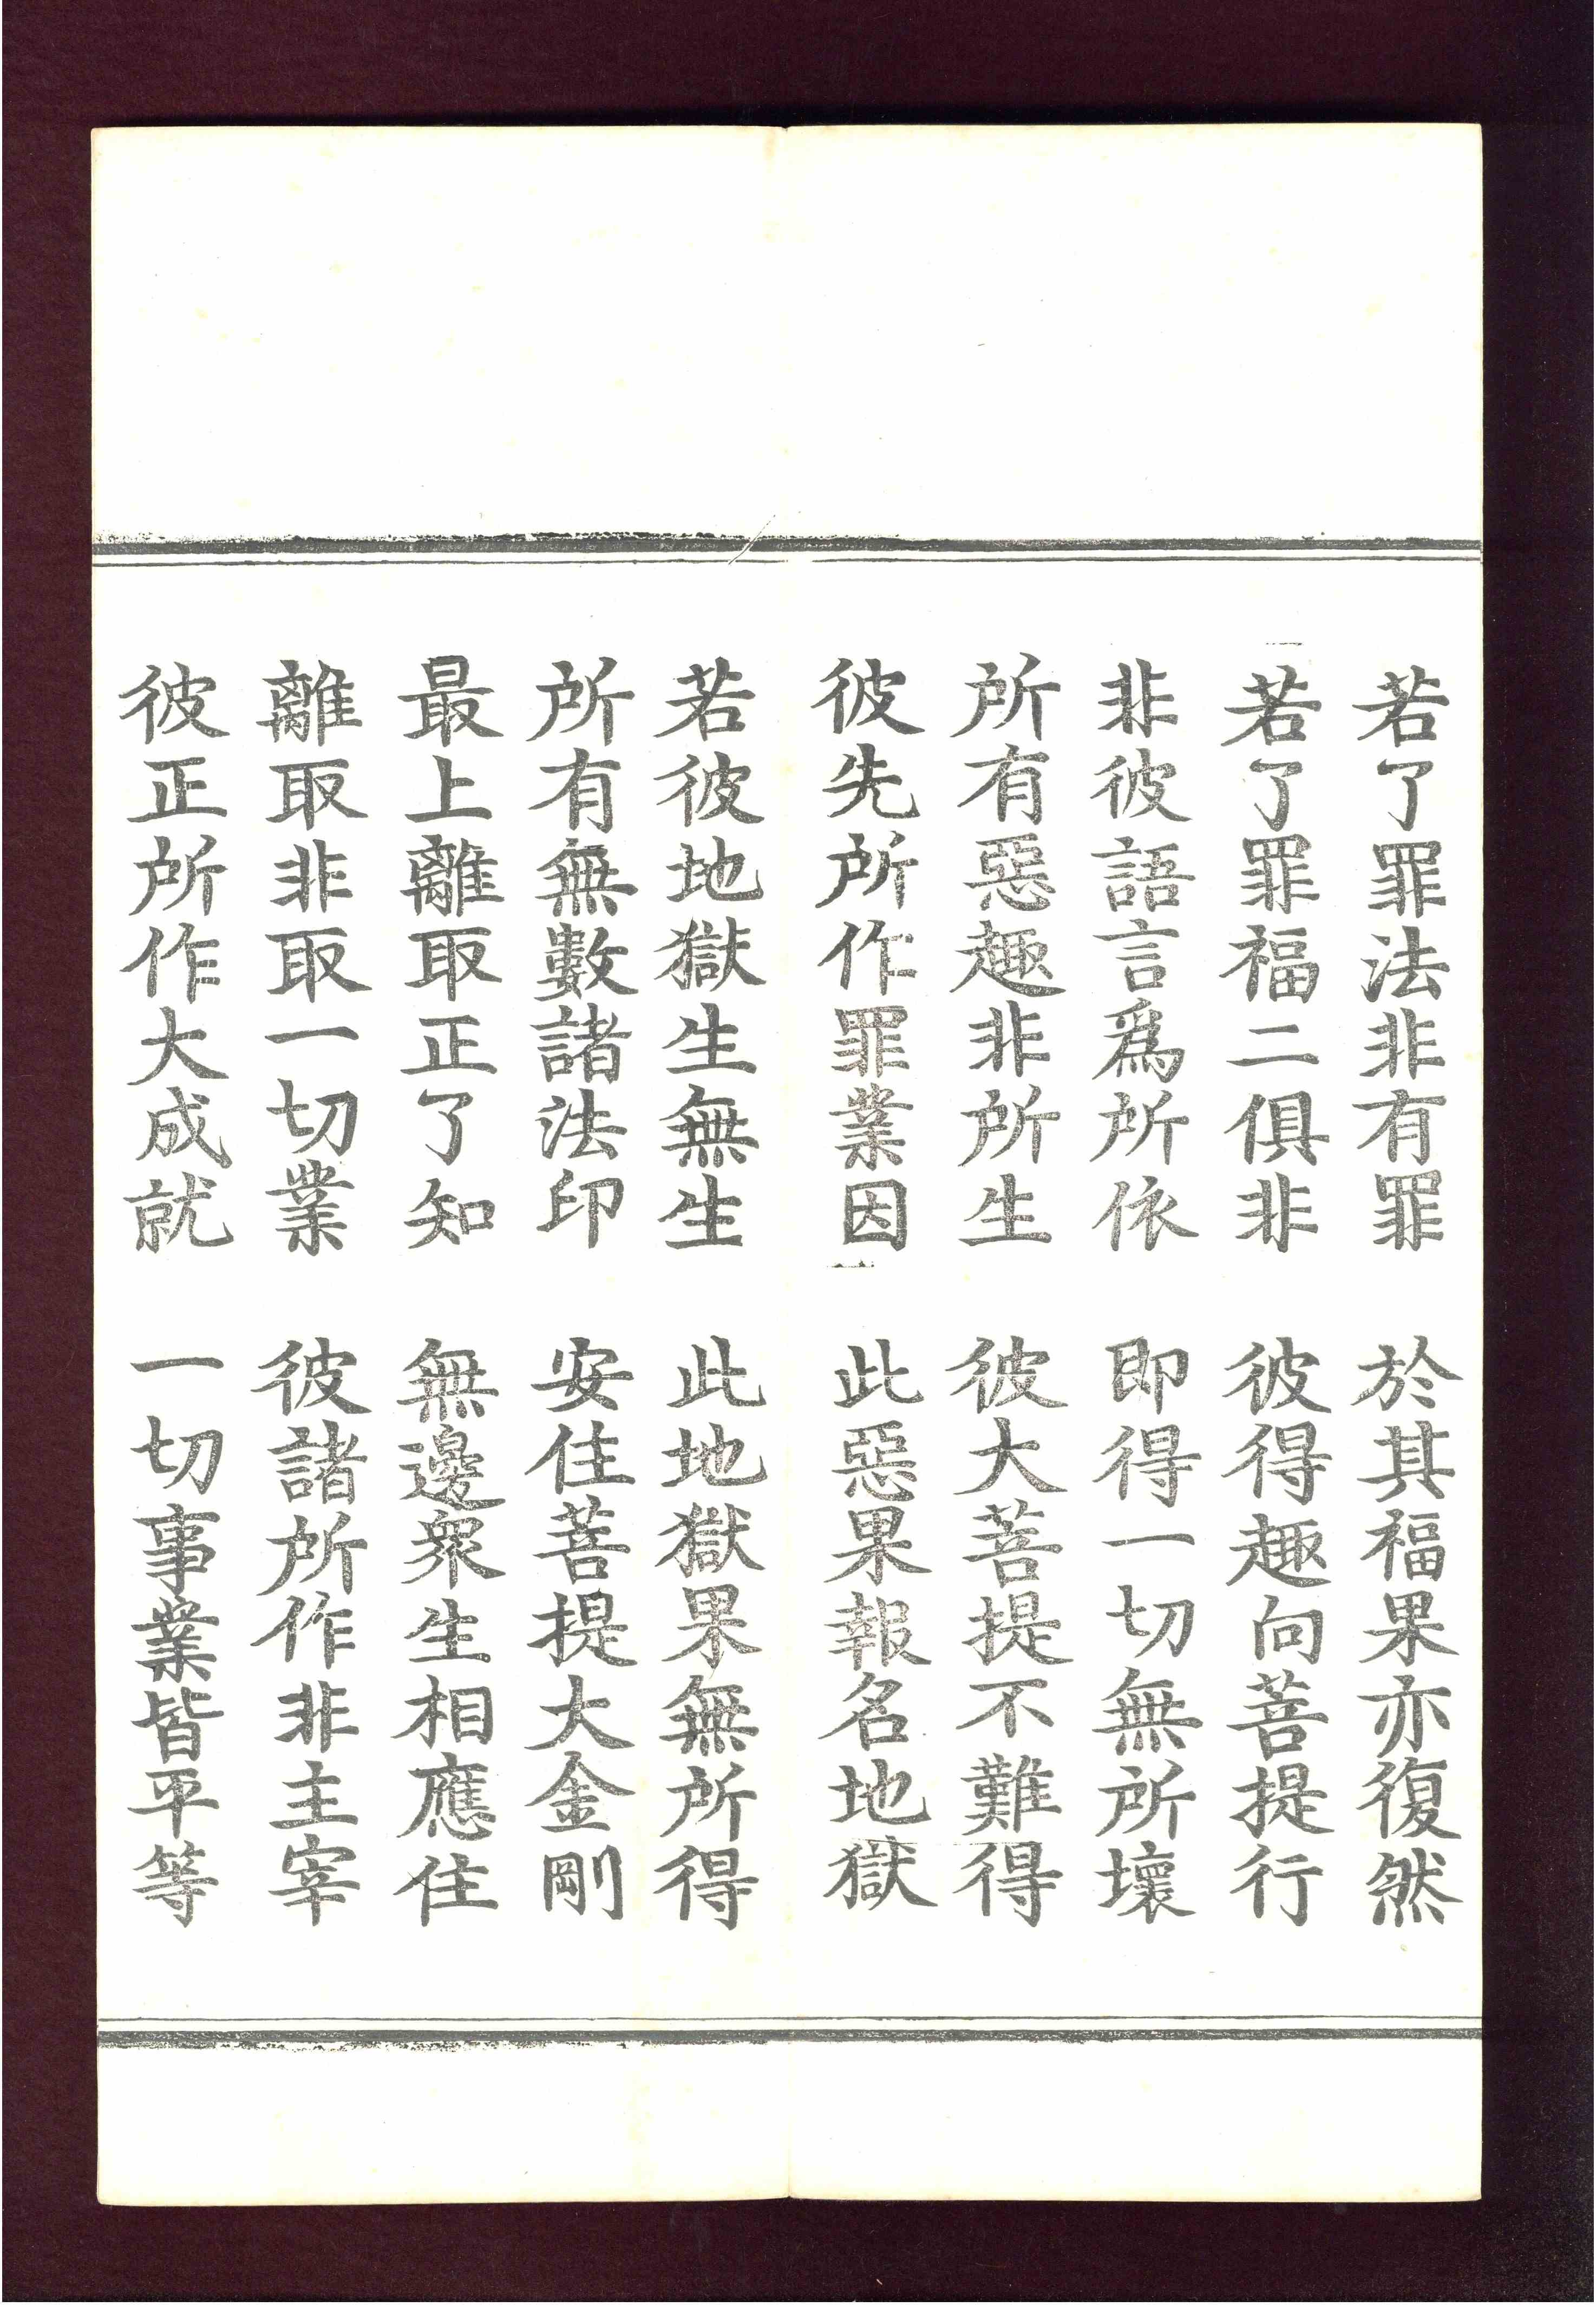 若了罪法非有罪　於其福果亦復然
若了罪福二俱非　彼得趣向菩提行
非彼語言爲所依　即得一切無所壞
所有惡趣非所生　彼大菩提不難得
彼先所作罪業因　此惡果報名地獄
若彼地獄生無生　此地獄果無所得
所有無數諸法印　安住菩提大金剛
最上離取正了知　無邊衆生相應住
離取非取一切業　彼諸所作非主宰
彼正所作大成就　一切事業皆平等